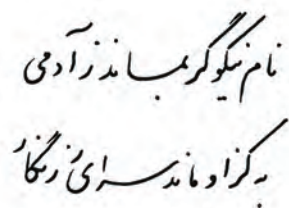 نام نیکو گر بماند ز آدمی
به کز او ماند سرای زرنگار